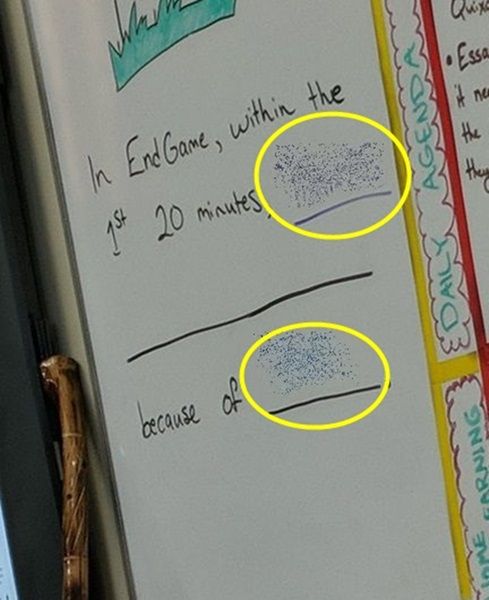 In EndGame, within the
1st 20 minutes,
because of
DAILY AGENDA
Quix
• Essa
it ne
the
they
EARNING